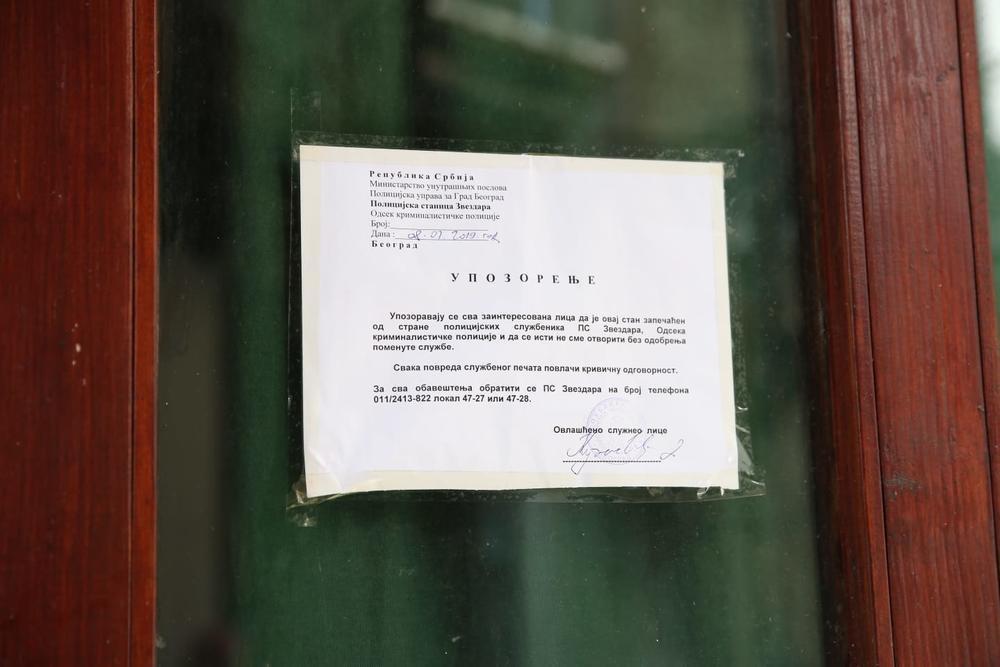 Република Србија
Министарство унутрашњих послова
Полицијска управа за Град Београд
Полицијска станица Звездара
Одсек криминалистичке полиције
Број:
Дана: 08.07. 2019. год
Београд
УПОЗОРЕЊЕ
Упозоравају се сва заинтересована лица да је овај стан запечаћен
од стране полицијских службеника ПС Звездара, Одсека
криминалистичке полиције и да се исти не сме отворити без одобрења
поменуте службе.
Свака повреда службеног печата повлачи кривичну одговорност.
За сва обавештења обратити се ПС Звездара на број телефона
011/2413-822 локал 47-27 или 47-28.
Овлашћено служнео лице